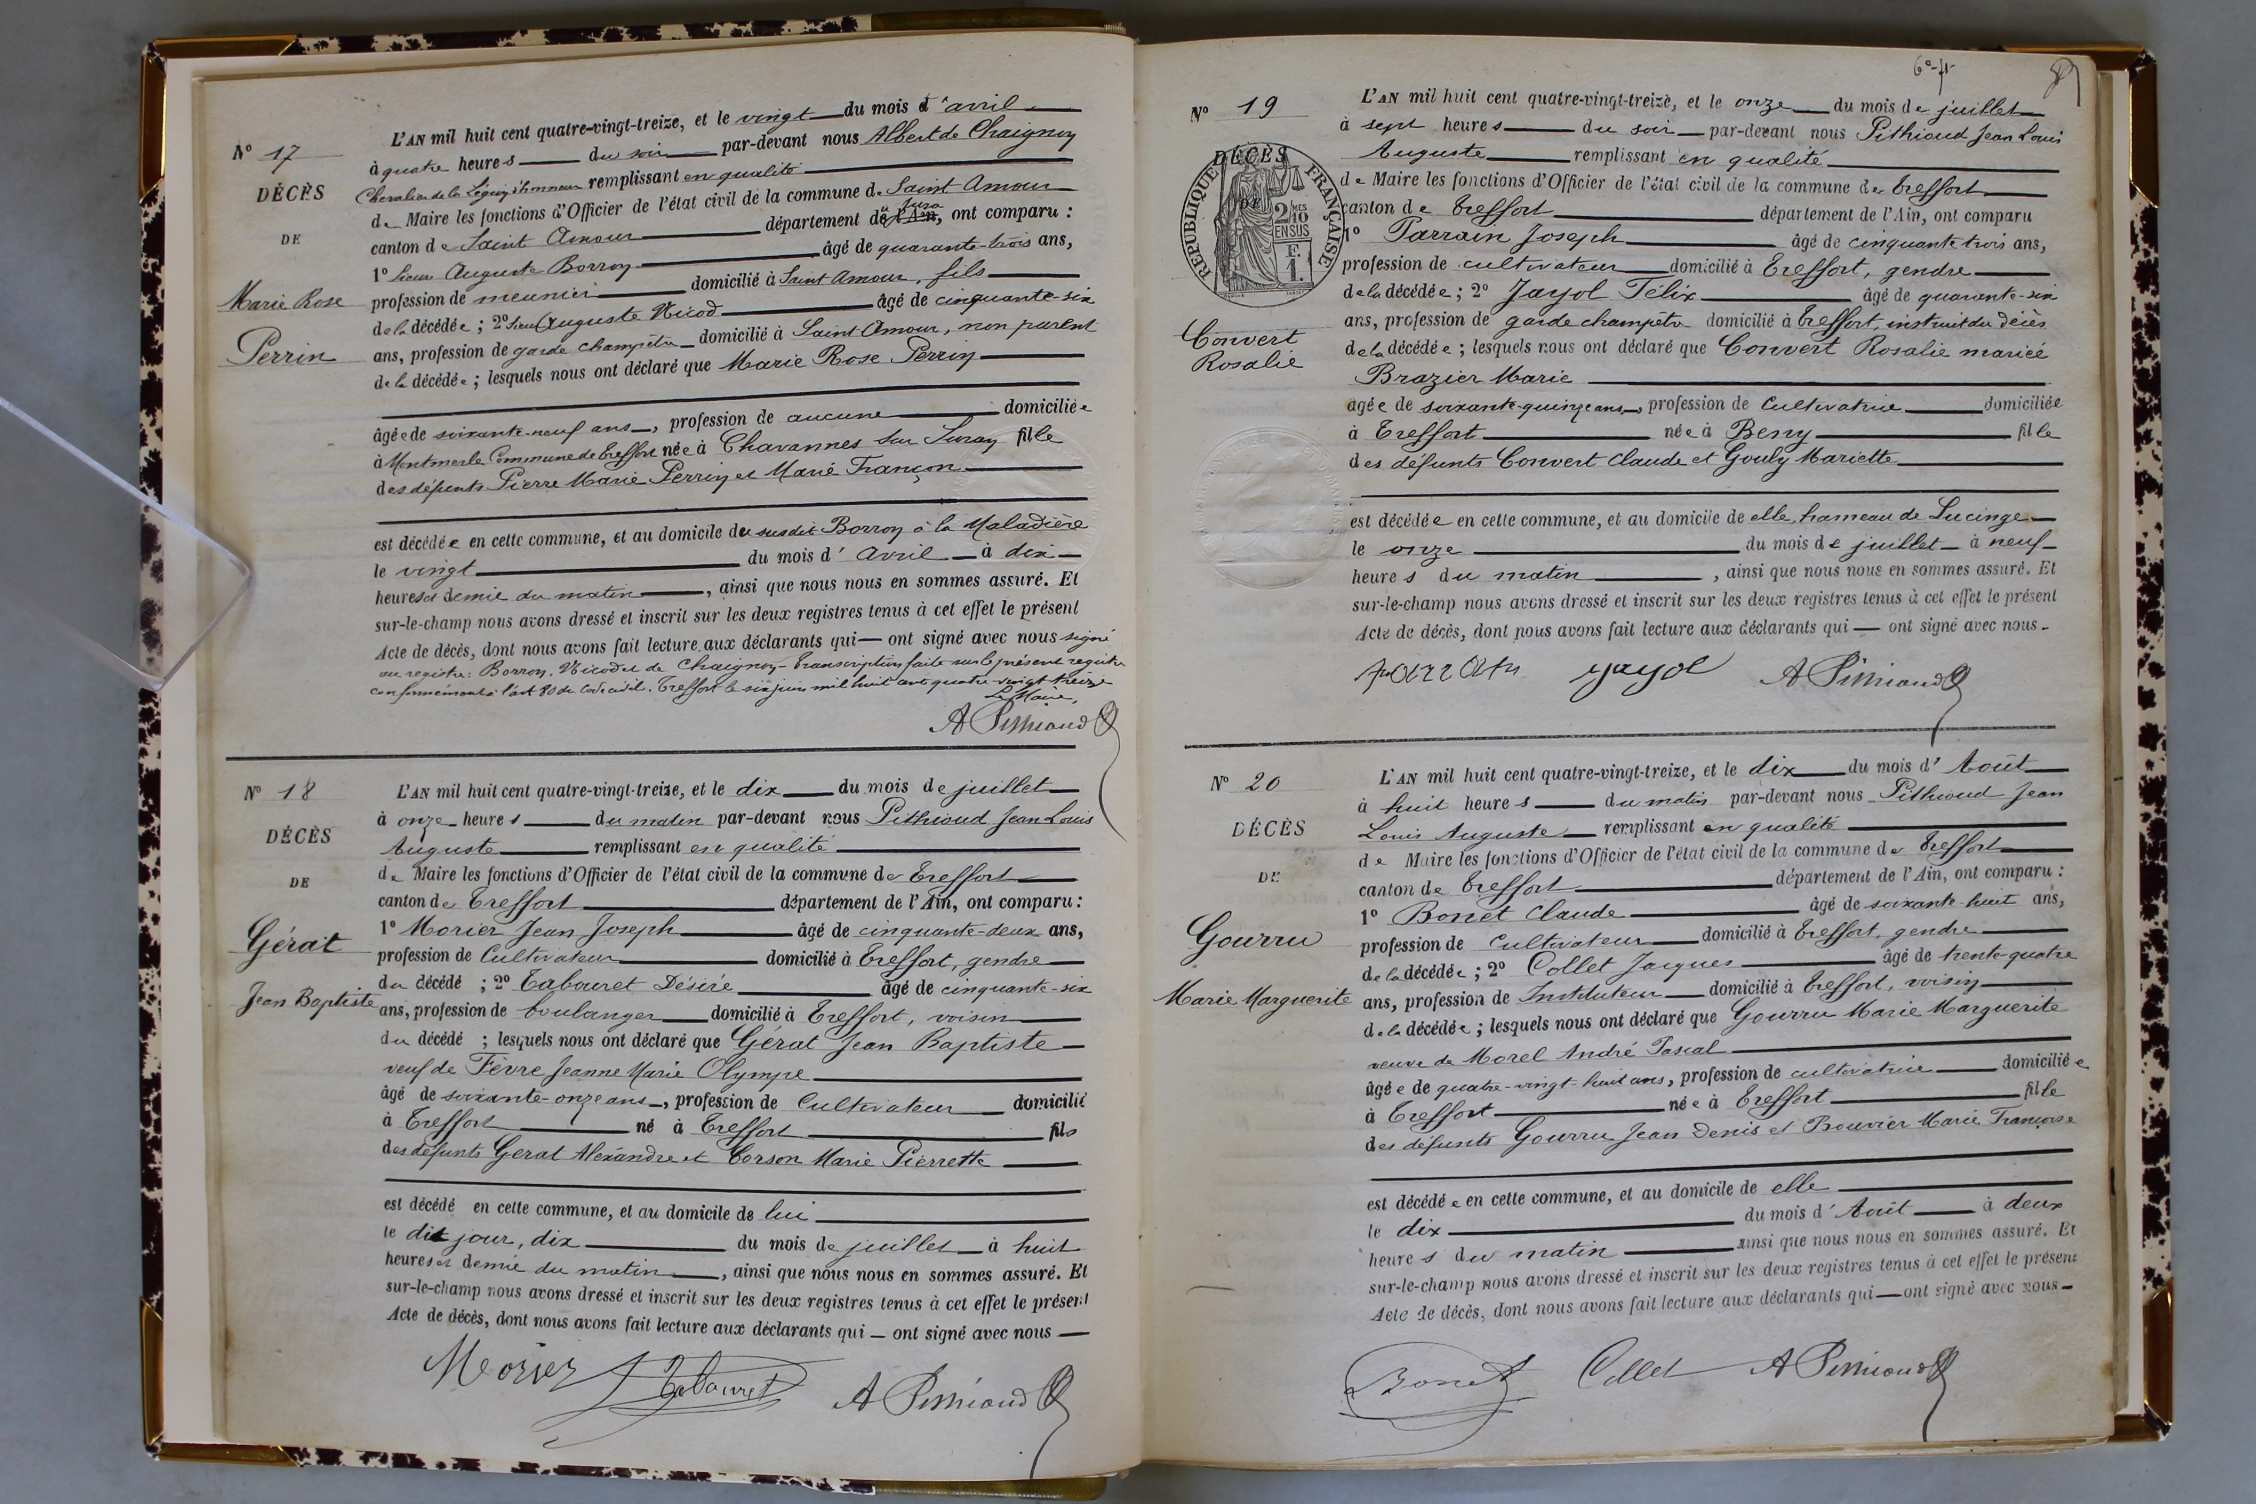 N° 17
DÉCÈS
DE
Marie Rose
Perrin
L'AN mil huit cent quatre-vingt-treize, et le vingt du mois d'avril
à quatre heures du soir par-devant nous Albert de Chaignon
Chevalier de la Légion d'honneur remplissant en qualité
de Maire les fonctions d'Officier de l'état civil de la commune de Saint Amour
canton de Saint Amour département du Jura de l'Ain, ont comparu :
1° Sieur Auguste Borron âgé de quarante-trois ans,
profession de meunier domicilié à Saint Amour, fils
de la décédée ; 2° Sieur Auguste Nicod âgé de cinquante-six
ans, profession de garde champêtre domicilié à Saint Amour, non parent
de la décédée ; lesquels nous ont déclaré que Marie Rose Perrin
âgée de soixante-neuf ans, profession de aucune domiciliée
à Montmerle Commune de Treffort née à Chavannes sur Suran fille
des défunts Pierre Marie Perrin et Marie Françon
est décédée en cette commune, et au domicile du susdit Borron à la Maladière
le vingt du mois d'avril à dix
heures et demie du matin, ainsi que nous nous en sommes assuré. Et
sur-le-champ nous avons dressé et inscrit sur les deux registres tenus à cet effet le présent
Acte de décès, dont nous avons fait lecture aux déclarants qui ont signé avec nous signé
au registre : Borron, Nicod et de Chaignon - Transcription faite sur le présent registre
conformément à l'art 80 du Code civil. Treffort le six juin mil huit cent quatre-vingt treize
Le Maire,
A Pithioud
N° 18
DÉCÈS
DE
Gérat
Jean Baptiste
L'AN mil huit cent quatre-vingt-treize, et le dix du mois de juillet
à onze heures du matin par-devant nous Pithioud Jean Louis
Auguste remplissant en qualité
de Maire les fonctions d'Officier de l'état civil de la commune de Treffort
canton de Treffort département de l'Ain, ont comparu :
1° Morier Jean Joseph âgé de cinquante-deux ans,
profession de Cultivateur domicilié à Treffort, gendre
du décédé ; 2° Tabouret Désiré âgé de cinquante-six
ans, profession de boulanger domicilié à Treffort, voisin
du décédé ; lesquels nous ont déclaré que Gérat Jean Baptiste
veuf de Fèvre Jeanne Marie Olympe
âgé de soixante-onze ans, profession de Cultivateur domicilié
à Treffort né à Treffort fils
des défunts Gerat Alexandre et Corson Marie Pierrette
est décédé en cette commune, et au domicile de lui
le dit jour, dix du mois de juillet à huit
heures et demie du matin, ainsi que nous nous en sommes assuré. Et
sur-le-champ nous avons dressé et inscrit sur les deux registres tenus à cet effet le présent
Acte de décès, dont nous avons fait lecture aux déclarants qui ont signé avec nous
Morier Tabouret A Pithioud
N° 19
DÉCÈS
DE
RÉPUBLIQUE FRANÇAISE
2/10 MES
EN SUS
F.
1.
Convert
Rosalie
L'AN mil huit cent quatre-vingt-treize, et le onze du mois de juillet
à sept heures du soir par-devant nous Pithioud Jean Louis
Auguste remplissant en qualité
de Maire les fonctions d'Officier de l'état civil de la commune de Treffort
canton de Treffort département de l'Ain, ont comparu
1° Parrain Joseph âgé de cinquante trois ans,
profession de cultivateur domicilié à Treffort, gendre
de la décédée ; 2° Jayol Félix âgé de quarante-six
ans, profession de garde champêtre domicilié à Treffort, instruit du décès
de la décédée ; lesquels nous ont déclaré que Convert Rosalie mariée
Brazier Marie
âgée de soixante-quinze ans, profession de Cultivatrice domiciliée
à Treffort née à Beny fille
des défunts Convert Claude et Gouly Mariette
est décédée en cette commune, et au domicile de elle, hameau de Lucinge
le onze du mois de juillet à neuf
heures du matin, ainsi que nous nous en sommes assuré. Et
sur-le-champ nous avons dressé et inscrit sur les deux registres tenus à cet effet le présent
Acte de décès, dont nous avons fait lecture aux déclarants qui ont signé avec nous
parrain jayol A Pithioud
N° 20
DÉCÈS
DE
Gourru
Marie Marguerite
L'AN mil huit cent quatre-vingt-treize, et le dix du mois d'Août
à huit heures du matin par-devant nous Pithioud Jean
Louis Auguste remplissant en qualité
de Maire les fonctions d'Officier de l'état civil de la commune de Treffort
canton de Treffort département de l'Ain, ont comparu :
1° Bonet Claude âgé de soixante-huit ans,
profession de Cultivateur domicilié à Treffort, gendre
de la décédée ; 2° Collet Jacques âgé de trente-quatre
ans, profession de Instituteur domicilié à Treffort, voisin
de la décédée ; lesquels nous ont déclaré que Gourru Marie Marguerite
veuve de Morel André Pascal
âgée de quatre-vingt-huit ans, profession de cultivatrice domiciliée
à Treffort née à Treffort fille
des défunts Gourru Jean Denis et Bouvier Marie Françoise
est décédée en cette commune, et au domicile de elle
le dix du mois d'Août à deux
heures du matin ainsi que nous nous en sommes assuré. Et
sur-le-champ nous avons dressé et inscrit sur les deux registres tenus à cet effet le présent
Acte de décès, dont nous avons fait lecture aux déclarants qui ont signé avec nous
Bonet Collet A Pithioud